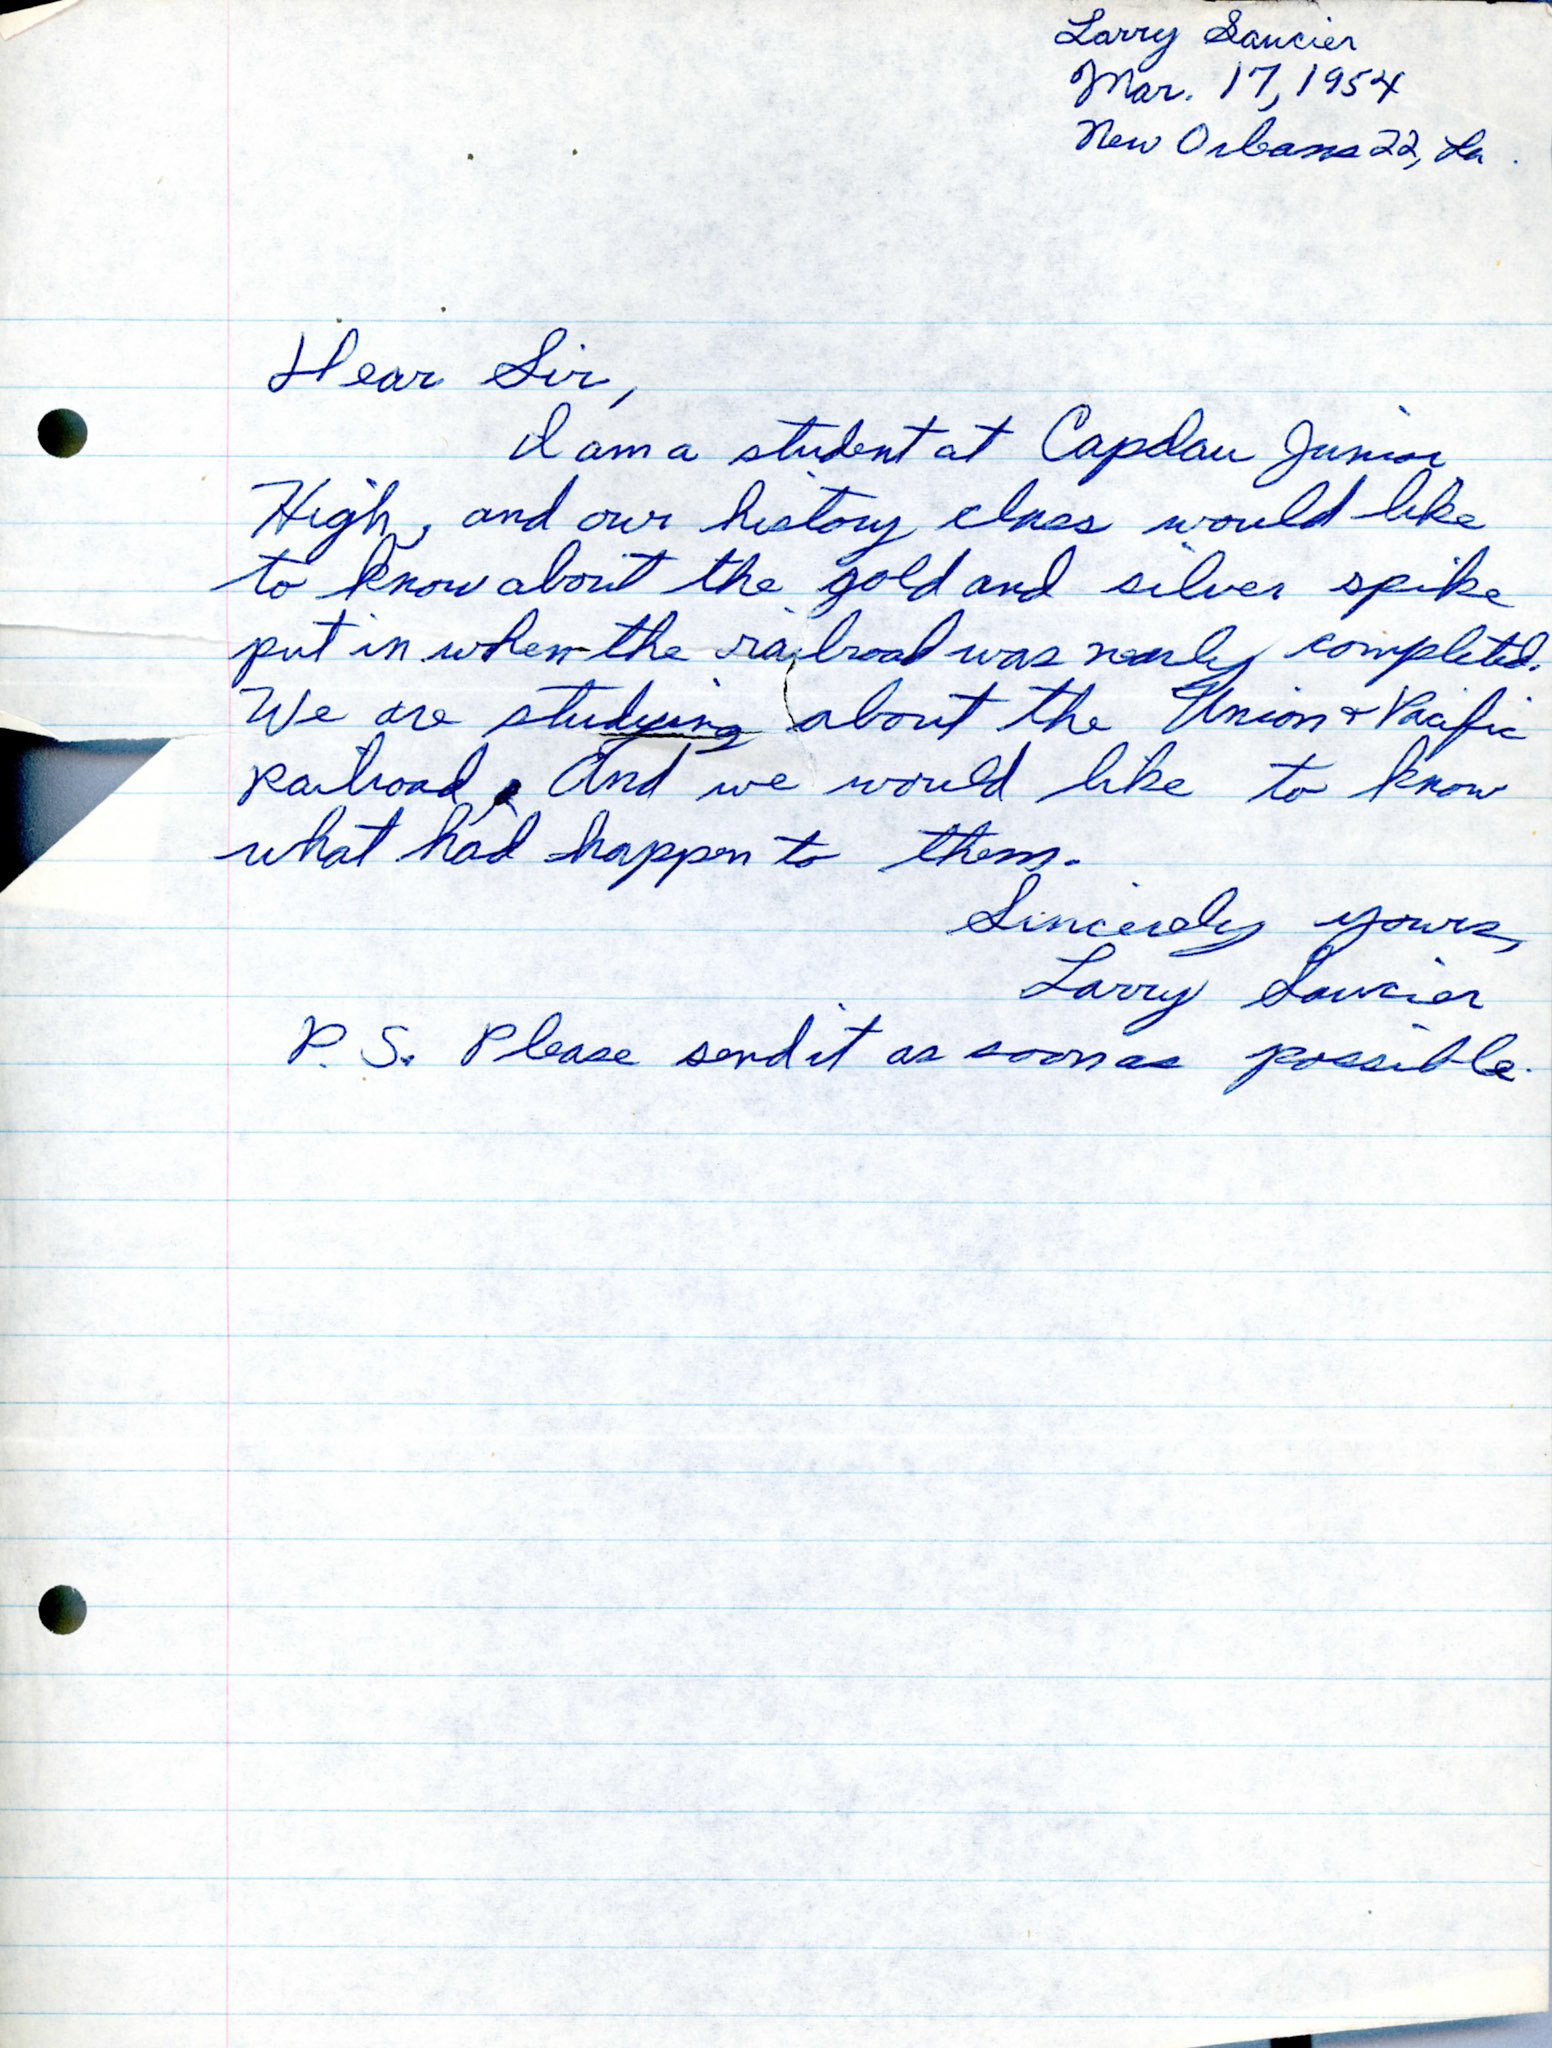 Larry Saucier
Mar. 17, 1954
New Orleans 22, La.
Dear Sir,
I am a student at Capdau Junior
High, and our history class would like
to know about the gold and silver spike
put in when the railroad was nearly completed.
We are studying about the Union & Pacific
Railroad, And we would like to know
what had happen to them.
Sincerely yours,
Larry Saucier
P.S. Please send it as soon as possible.